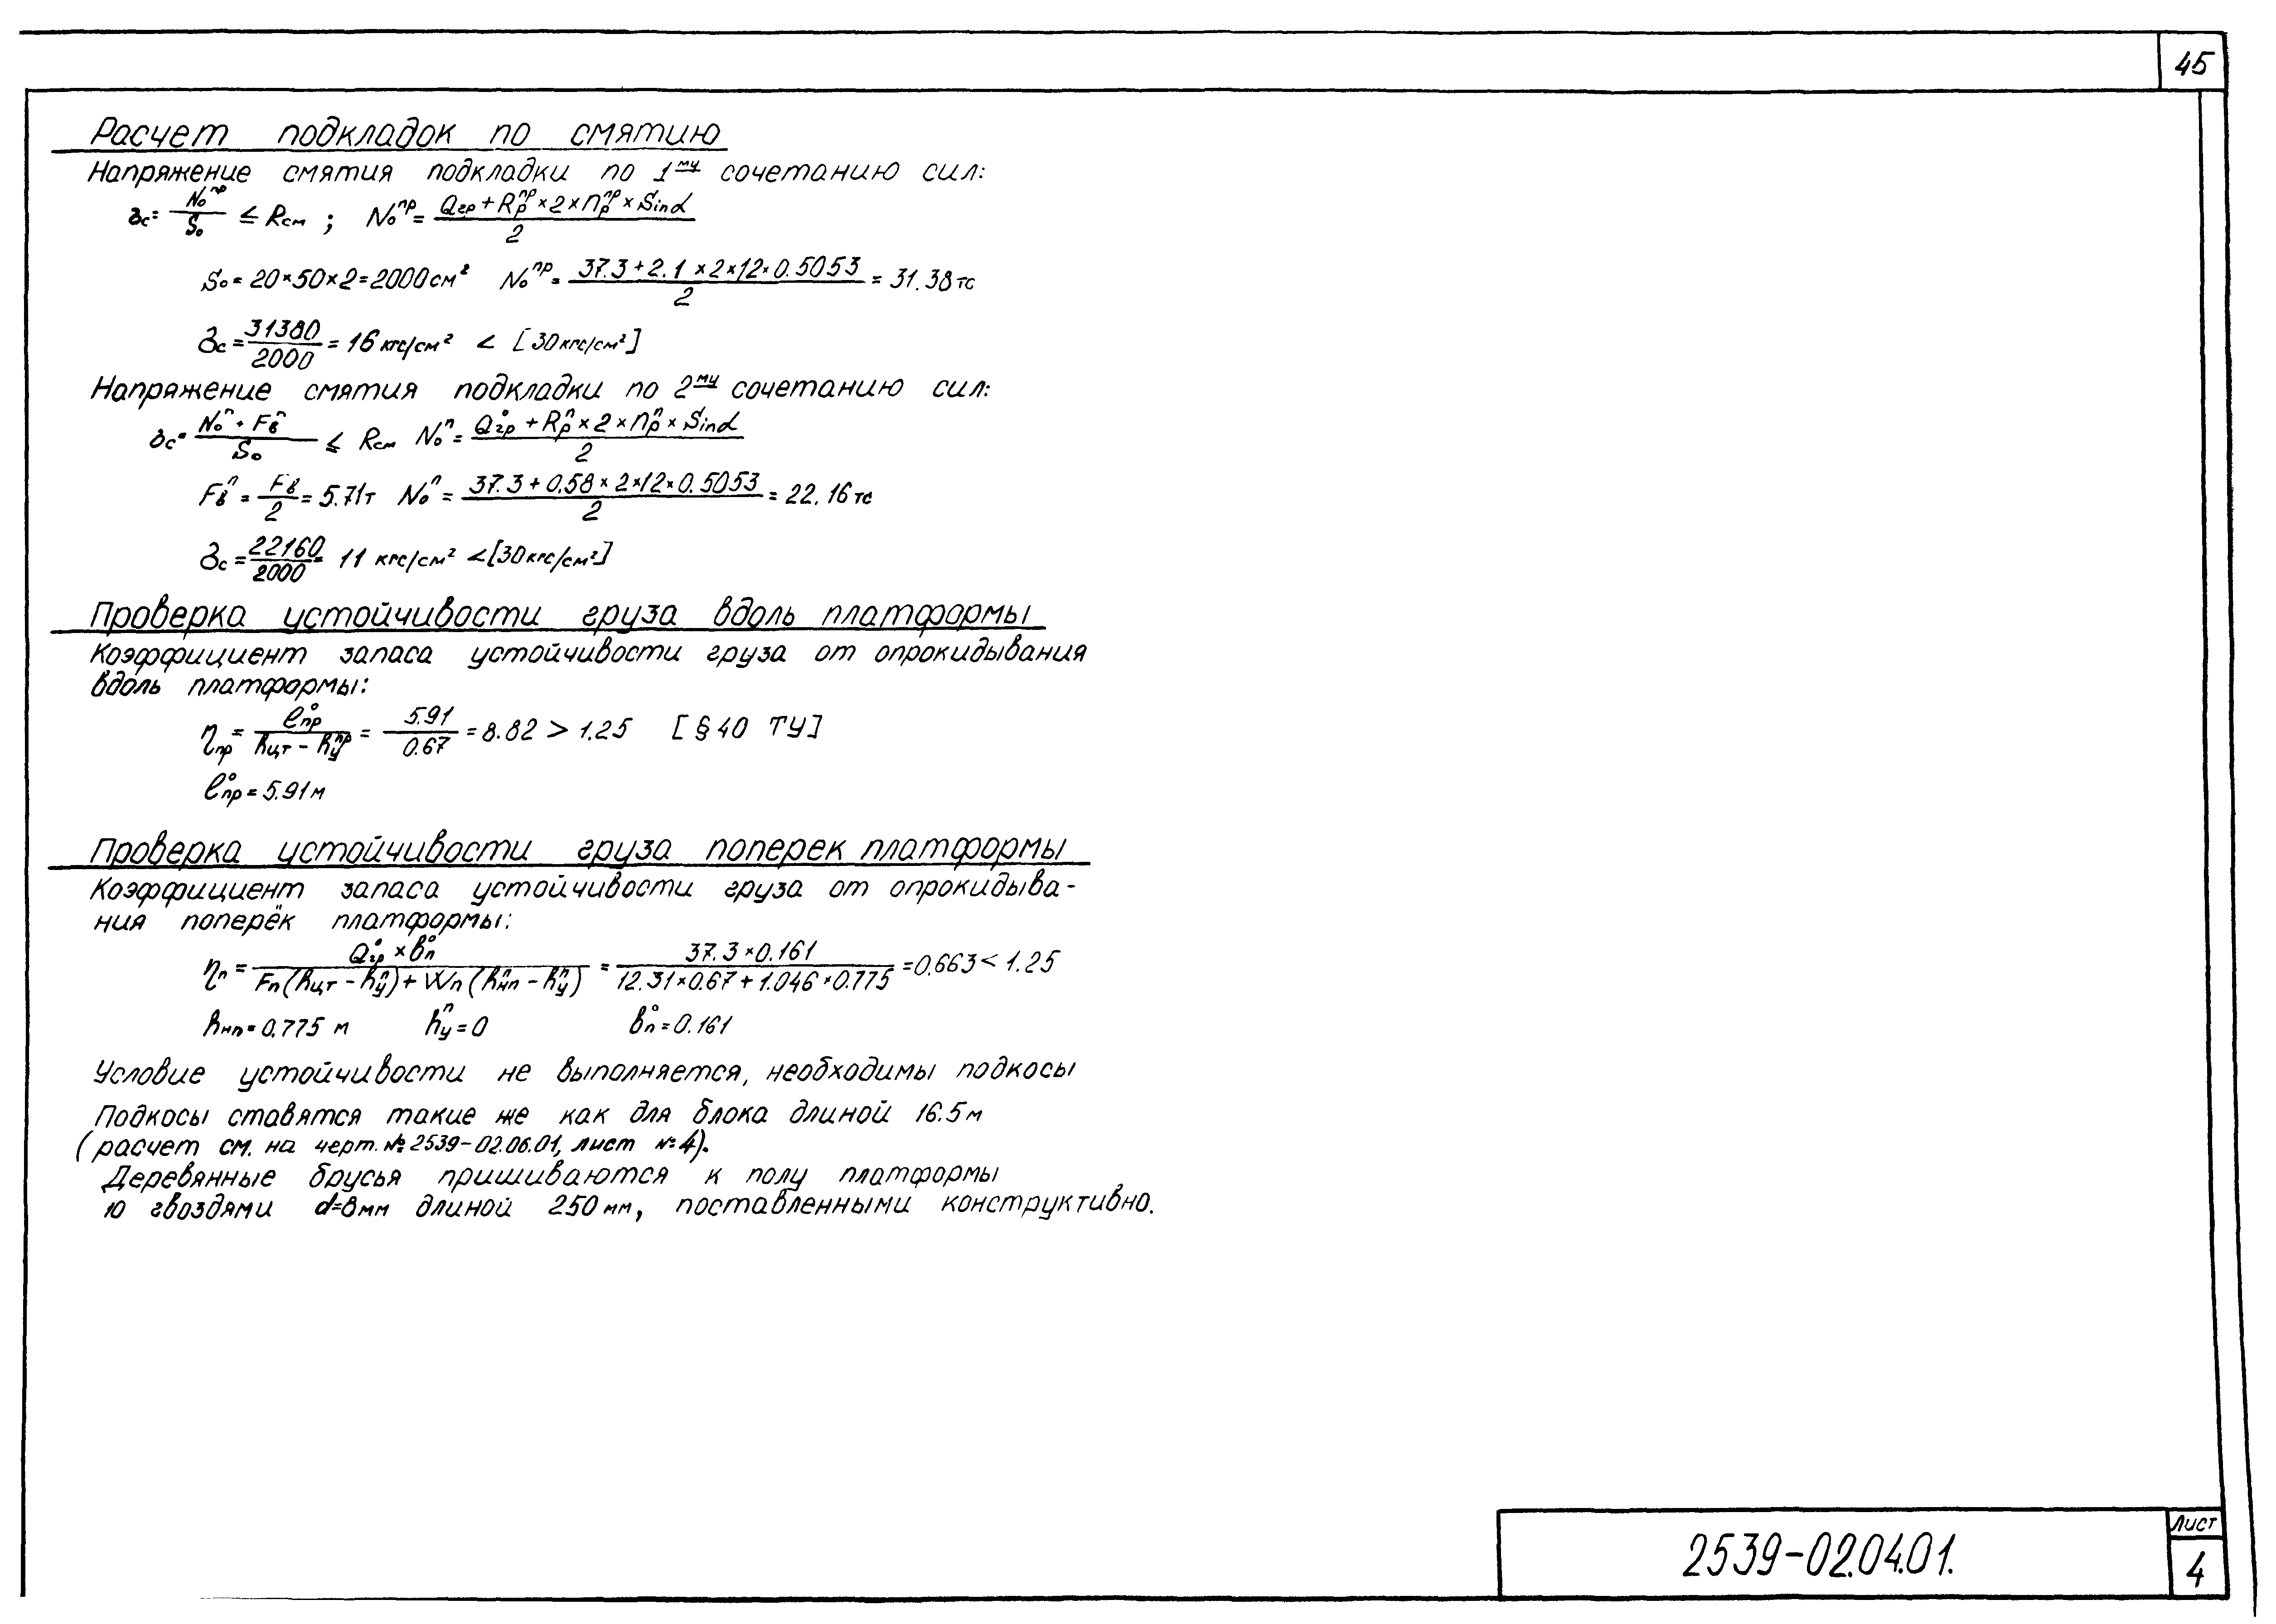 45
Расчет подкладок по смятию
Напряжение смятия подкладки по 1му сочетанию сил:
σс = Nо^пр / Sо ≤ Rсм ; Nо^пр = (Qгр + Rр^пр × 2 × nр^пр × Sinα) / 2
Sо = 20×50×2 = 2000 см² Nо^пр = (37.3 + 2.1 × 2 × 12 × 0.5053) / 2 = 31.38 тс
σс = 31380 / 2000 = 16 кгс/см² < [30 кгс/см²]
Напряжение смятия подкладки по 2му сочетанию сил:
σс = (Nо^п + Fв^п) / Sо ≤ Rсм Nо^п = (Q°гр + Rр^п × 2 × nр^п × Sinα) / 2
Fв^п = Fв / 2 = 5.71т Nо^п = (37.3 + 0.58 × 2 × 12 × 0.5053) / 2 = 22.16 тс
σс = 22160 / 2000 = 11 кгс/см² < [30 кгс/см²]
Проверка устойчивости груза вдоль платформы
Коэффициент запаса устойчивости груза от опрокидывания
вдоль платформы:
ηпр = ℓ°пр / (hцт − hу^пр) = 5.91 / 0.67 = 8.82 > 1.25 [§40 ТУ]
ℓ°пр = 5.91 м
Проверка устойчивости груза поперек платформы
Коэффициент запаса устойчивости груза от опрокидыва-
ния поперёк платформы:
ηп = (Q°гр × b°п) / (Fп(hцт − hу^п) + Wп(hнп^п − hу^п)) = (37.3 × 0.161) / (12.31 × 0.67 + 1.046 × 0.775) = 0.663 < 1.25
hнп = 0.775 м hу^п = 0 b°п = 0.161
Условие устойчивости не выполняется, необходимы подкосы
Подкосы ставятся такие же как для блока длиной 16.5 м
(расчет см. на черт. № 2539-02.06.01, лист №4).
Деревянные брусья пришиваются к полу платформы
10 гвоздями d=8мм длиной 250 мм, поставленными конструктивно.
2539-02.04.01.
Лист
4